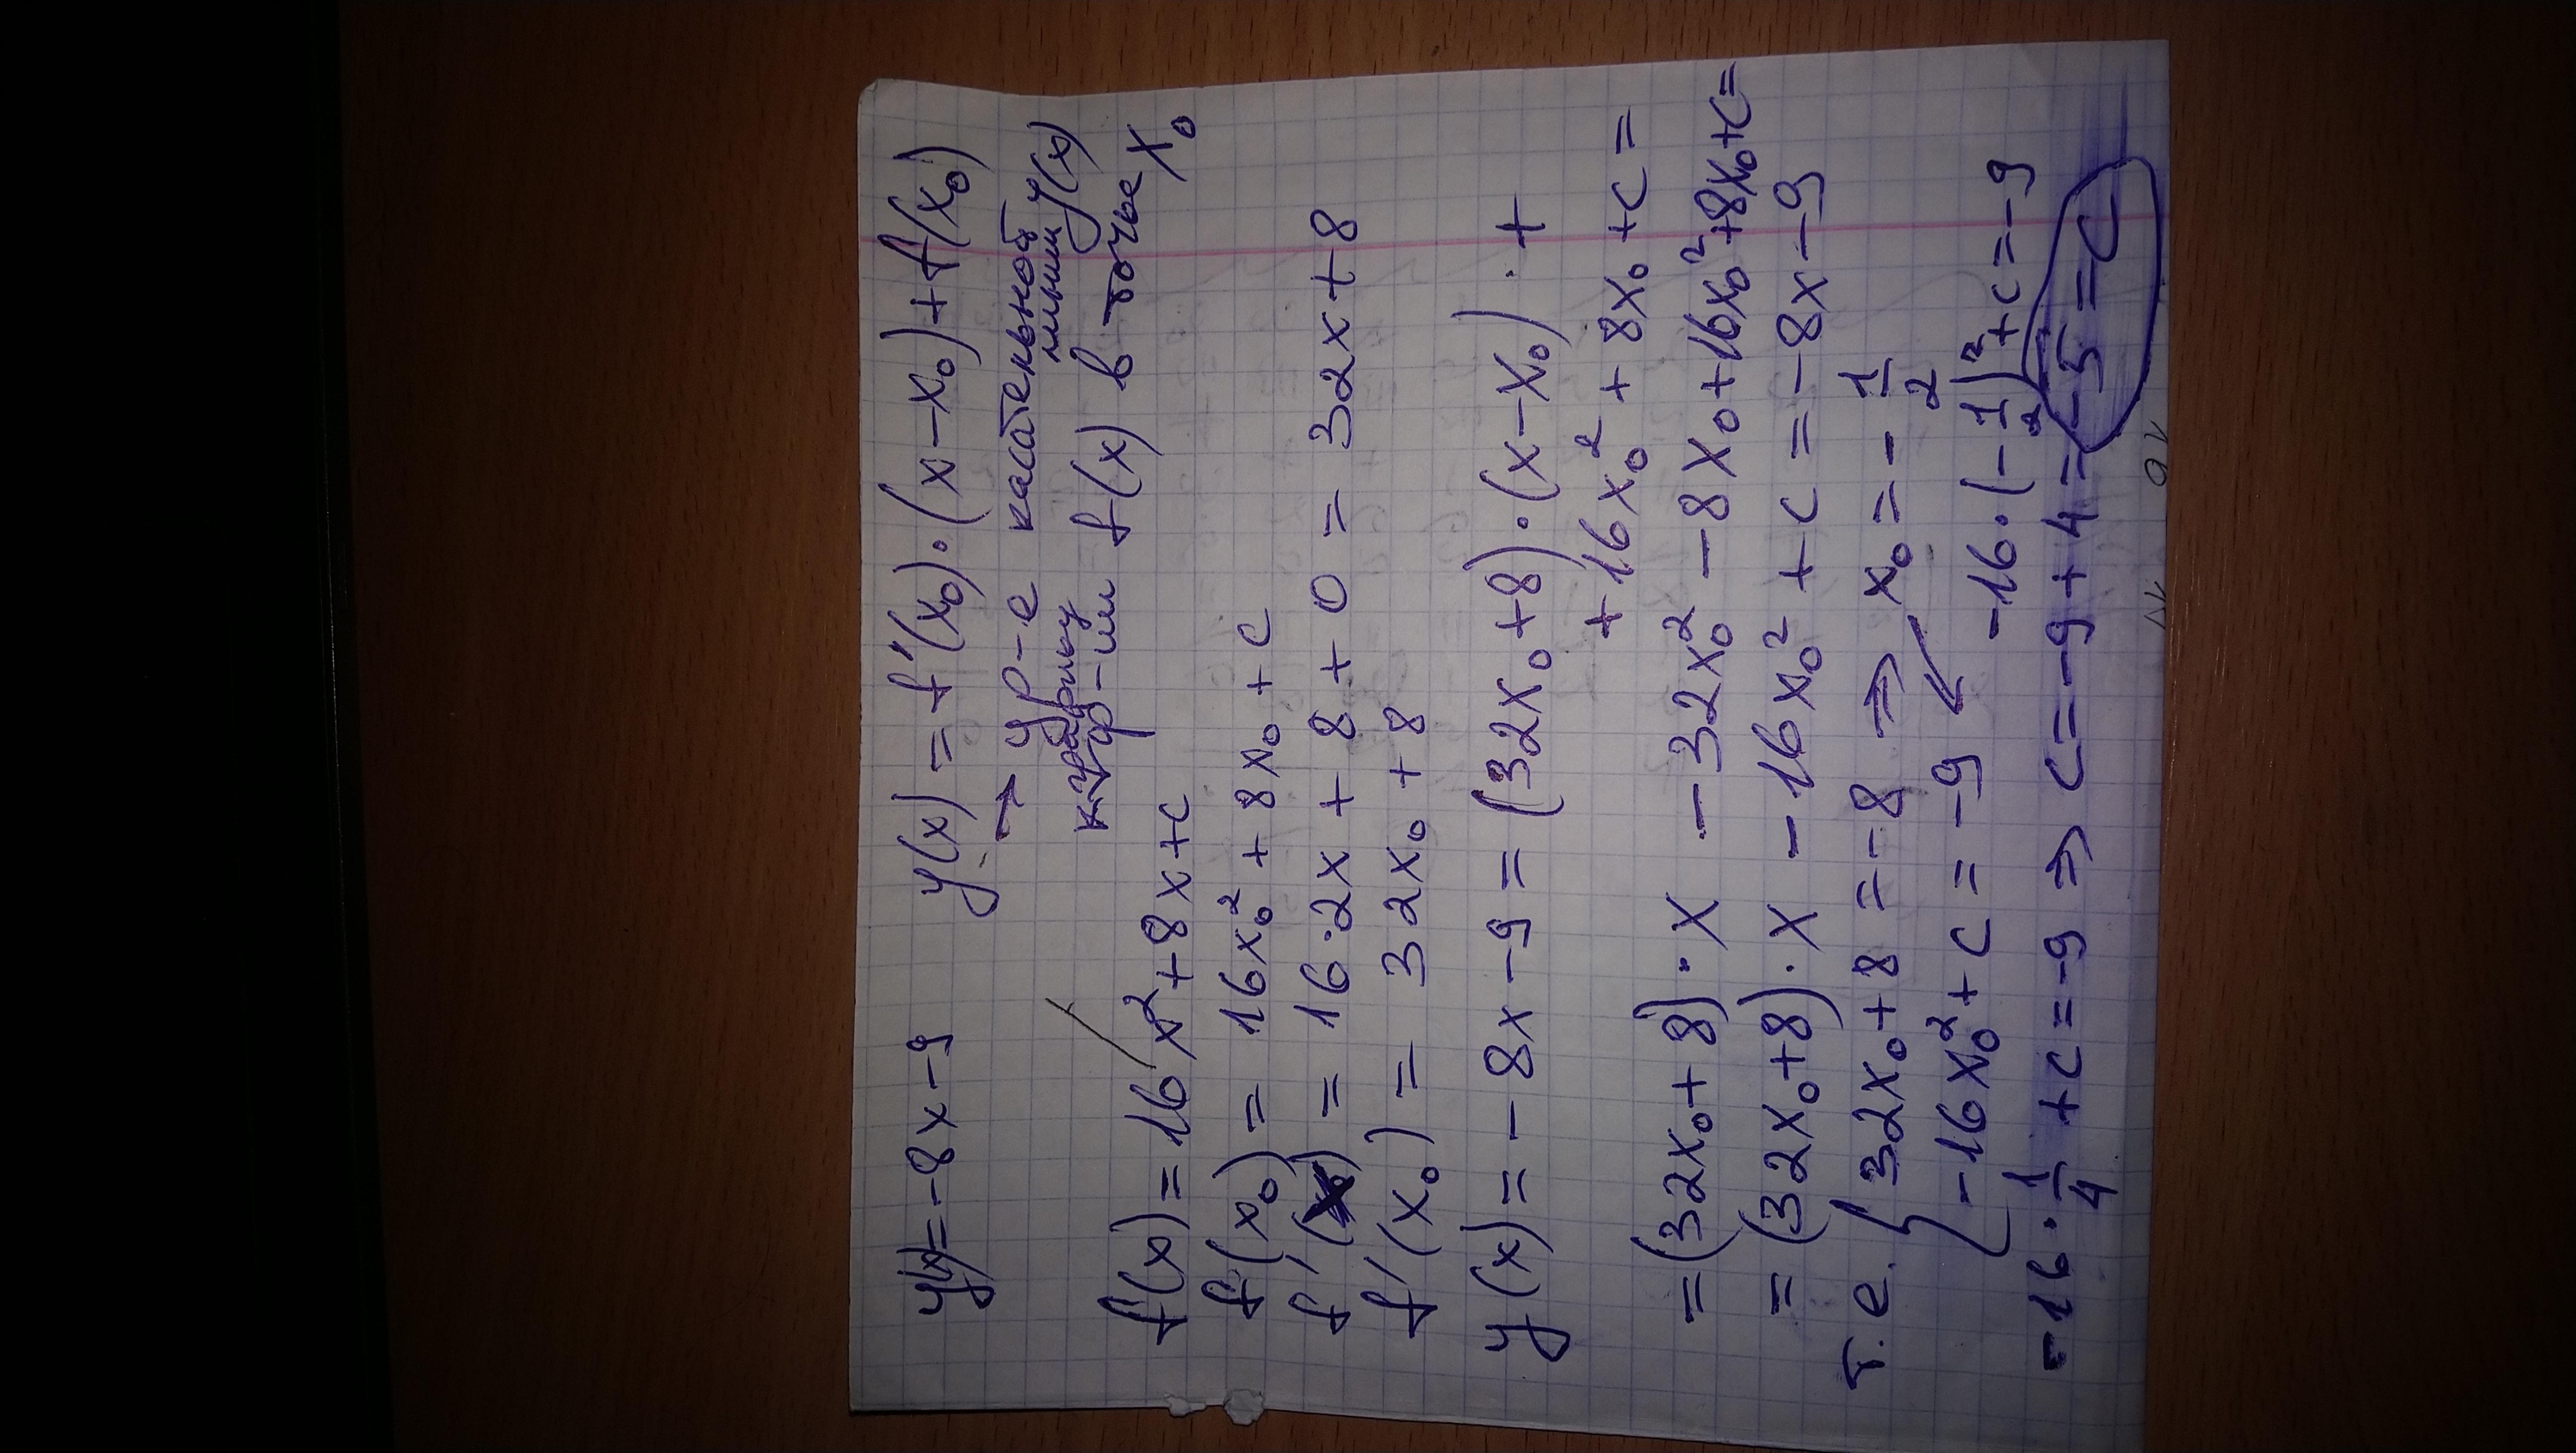 y(x)=-8x-9 y(x)=f'(x₀)·(x-x₀)+f(x₀)
→ ур-е касательной
линии y(x)
к графику
ф-ции f(x) в точке x₀
f(x)=16x²+8x+c
f(x₀)=16x₀²+8x₀+c
f'(x)=16·2x+8+0=32x+8
f'(x₀)=32x₀+8
y(x)=-8x-9=(32x₀+8)·(x-x₀)·+
+16x₀²+8x₀+c=
=(32x₀+8)·x-32x₀²-8x₀+16x₀²+8x₀+c=
=(32x₀+8)·x-16x₀²+c=-8x-9
т.е. { 32x₀+8=-8 ⇒ x₀=-1/2
-16x₀²+c=-9 ↙ -16·(-1/2)²+c=-9
-16·1/4+c=-9 ⇒ c=-9+4=-5=c